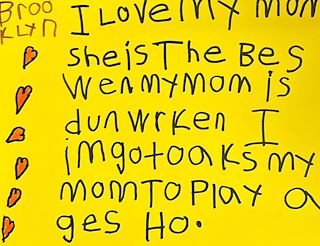 Broo
klyn
I Love My Mom
she is The Bes
wen my mom is
dun wrken I
im go to aks my
mom To play a
ges Ho.